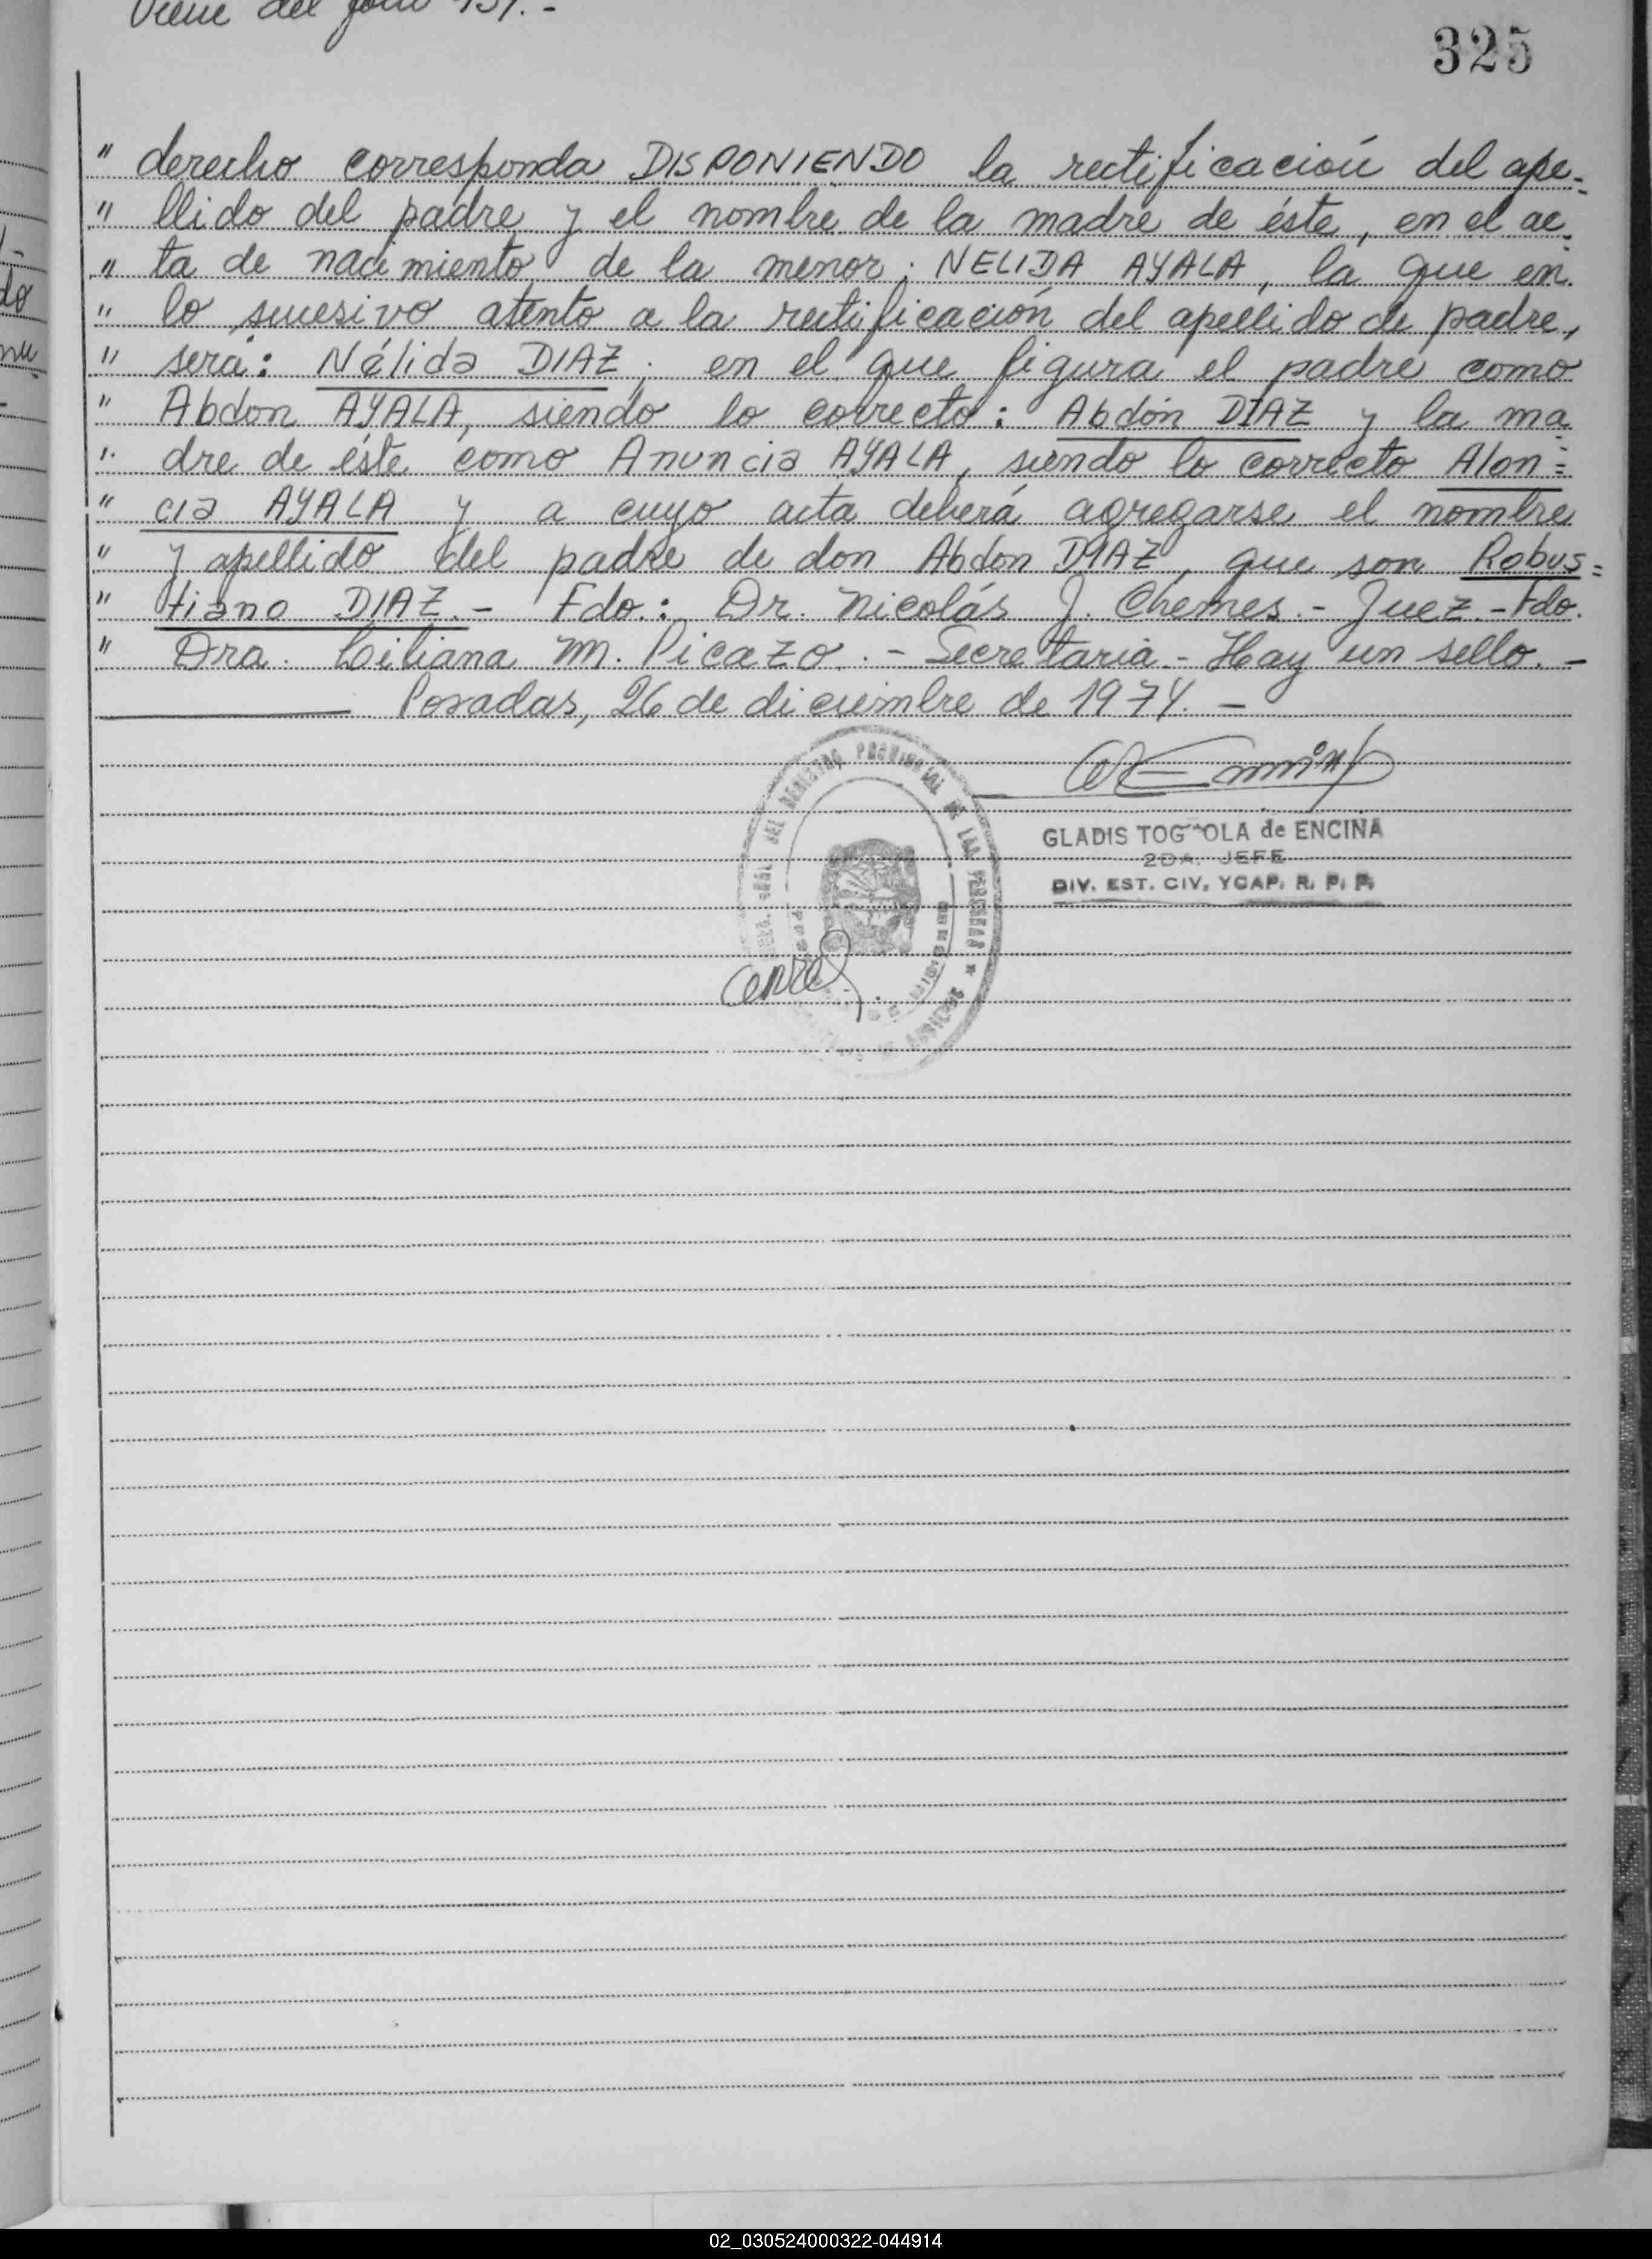 Viene del folio 151.-
325
" derecho corresponda DISPONIENDO la rectificación del ape-
" llido del padre y el nombre de la madre de éste, en el ac-
" ta de nacimiento de la menor: NELIDA AYALA, la que en
" lo sucesivo atento a la rectificación del apellido de padre,
" será: Nélida DIAZ; en el que figura el padre como
" Abdon AYALA, siendo lo correcto: Abdón DIAZ y la ma
" dre de éste como Anuncia AYALA, siendo lo correcto Alon=
" cia AYALA y a cuyo acta deberá agregarse el nombre
" y apellido del padre de don Abdon DIAZ, que son Robus=
" tiano DIAZ.- Fdo.: Dr. Nicolás J. Chemes.- Juez.- Fdo.
" Dra. Liliana M. Picazo.- Secretaria.- Hay un sello.-
Posadas, 26 de diciembre de 1974.-
REGISTRO PROVINCIAL DE LAS PERSONAS
GLADIS TOGNOLA de ENCINA
2DA. JEFE
DIV. EST. CIV. YCAP. R. P. P.
02_030524000322-044914